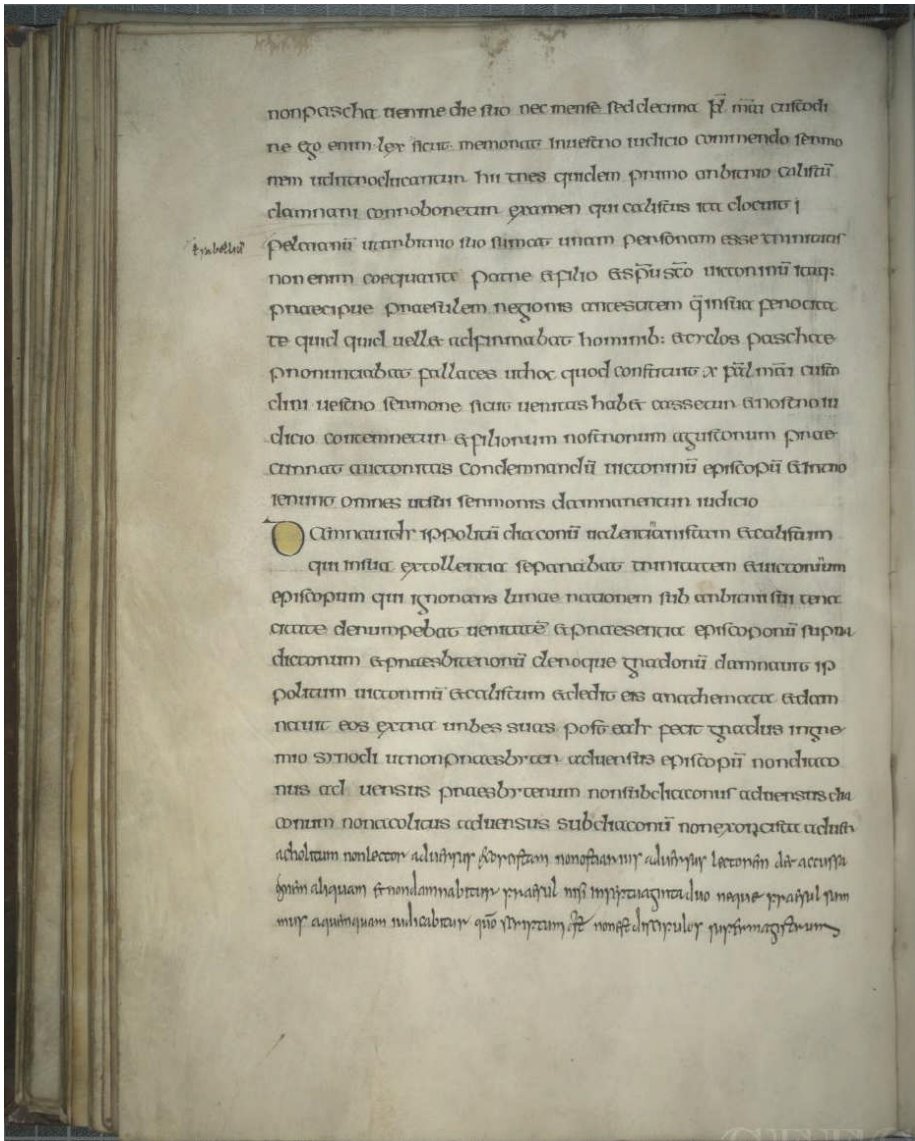 non pascha uenire die suo nec mense sed decima kl maii custodi
ne ego enim lex sicut memorat in uestro iudicio commendo sermo
nem ut hii tres quidem primo arbitrio calistū
damnari conroboretur examen qui calistus ita docuit
sabellianū ut arbitrio suo sumat unam personam esse trinitatis
non enim coequante patre & filio & spū scō uictorinū itaq:
praecipue praesulem regionis in sua ferocita
te quid quid uell& adfirmabat hominib: & cyclos paschae
pronuntiabat fallaces ut hoc quod constituit x kal maii custo
diri uestro sermone sicut ueritas hab& cassetur & nostro iu
dicio contemnetur & filiorum nostrorum agustorum prae
auctoritas condemnandū uictorinū episcopū
omnes uestri sermonis damnarentur iudicio
Damnauit ippolitū diaconū ualentianistam & calistum
qui in sua extollentia separabat trinitatem & uictorinum
episcopum qui ignorans lunae rationem sub arbitrii sui tena
citate derumpebat ueritatē & praesentia episcoporū supra
dictorum & praesbiterorū graduū damnauit ip
politum uictorinū & calistum & dedit eis anathemata & dam
nauit eos extra urbes suas fecit gradus in gre
mio synodi ut non praesbyter aduersus episcopū non diaco
nus ad uersus praesbyterum non subdiaconus aduersus dia
conum non acolitus aduersus subdiaconū non exorcista aduers
acholitum non lector aduersus exorcistam non ostiarius aduersus lectorem det accussa
aliquam et non damnabitur praesul nisi in septuaginta duo neque praesul sum
mus a quenquam iudicabitur quō scriptum est non est discipulos super magistrum